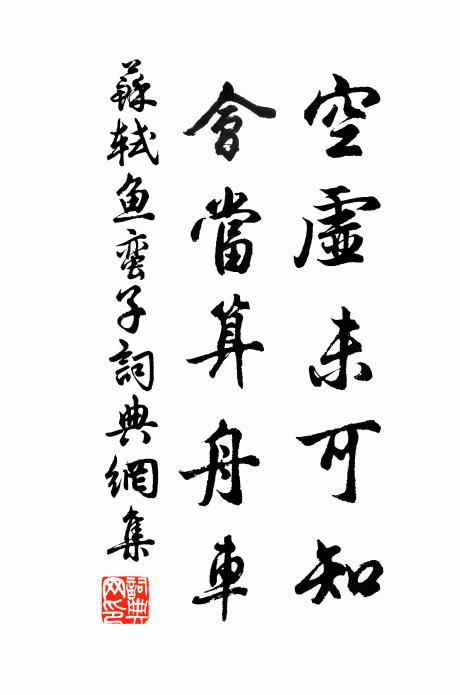 空虛未可知
會當算舟車
蘇軾魚蠻子詞典網集
詞典